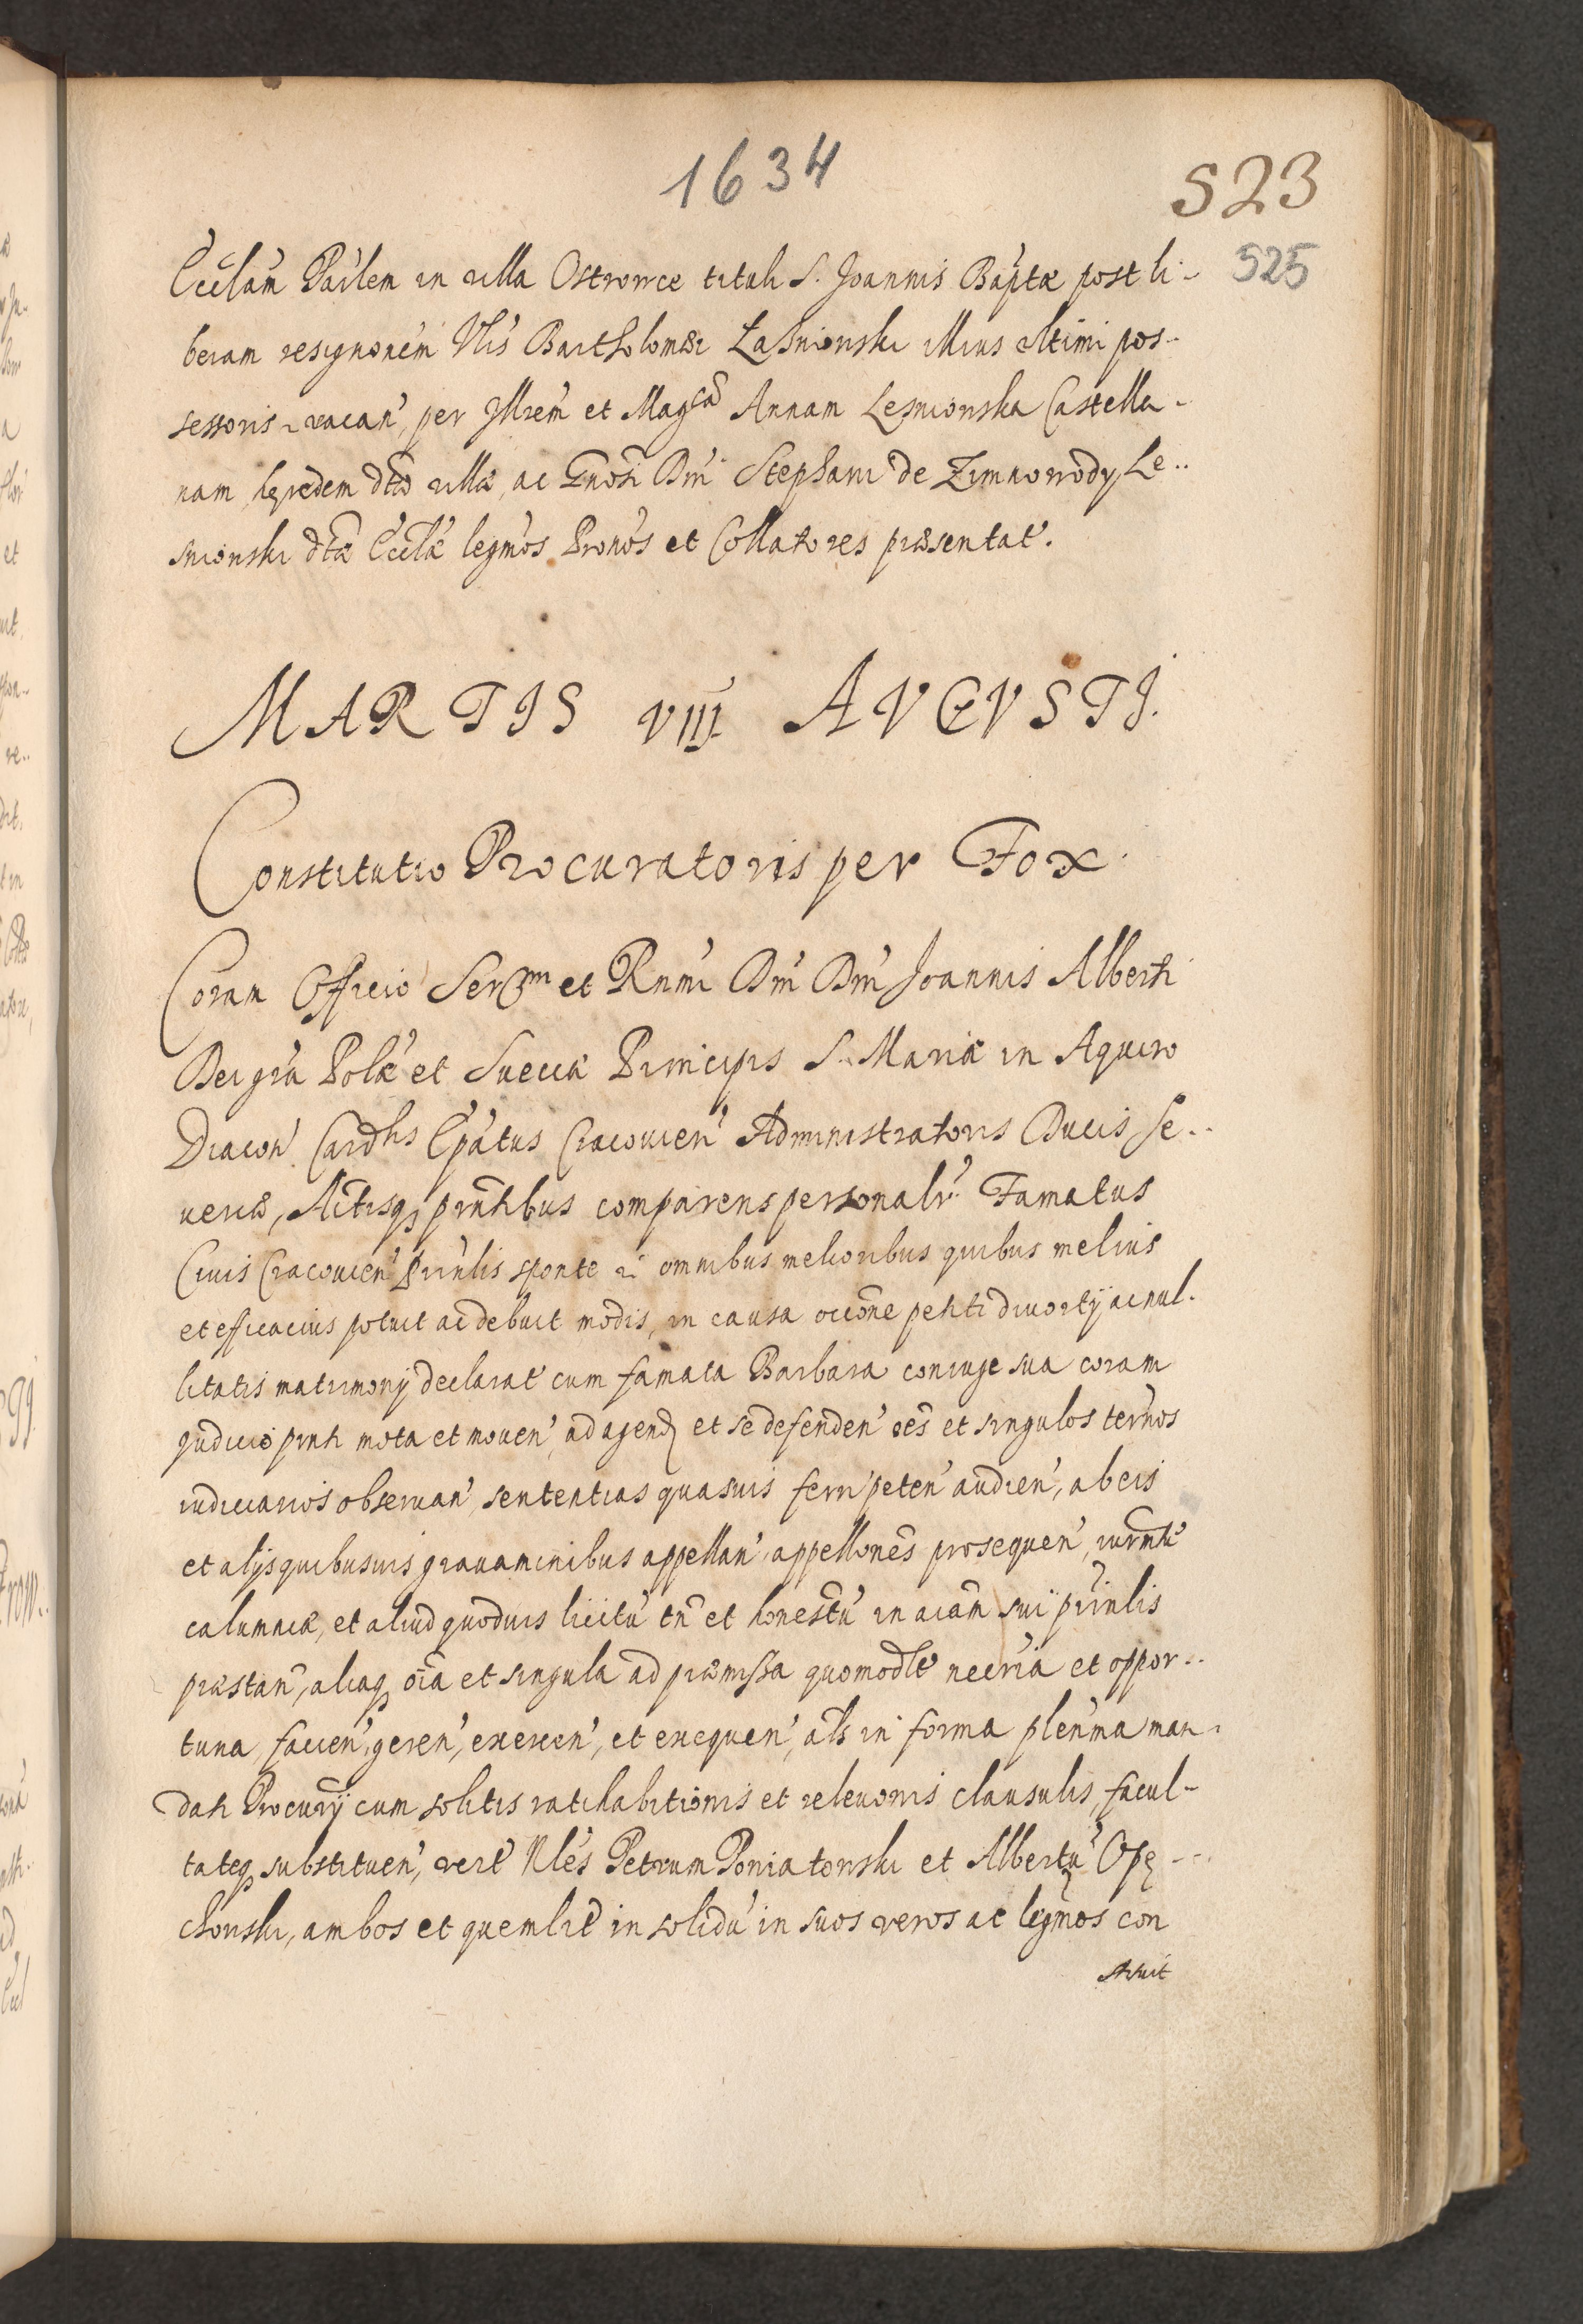 1634
523
525
Ecclam Pârlem in villa Ostrowce tituli S. Joannis Bâptæ post li-
beram resignonem Vlis Bartholomæi Laßniowski illius ultimi pos-
sessoris vacan, per Illrem et Magcã Annam Lesniowska Castella-
nam hæredem dtæ villæ, ac Gnosi Dni Stephani de Zimnowody Le-
sniowski dtæ Ecclæ legmos Pronos et Collatores præsentat.
MARTIS VIII AVGVSTI.
Constitutio Procuratoris per Fox.
Coram Officio Sermi et Rnmi Dni Dni Joannis Alberti
Dei gra Polæ et Sueciæ Principis S. Mariæ in Aquiro
Diacon Cardlis Epatus Cracouien Administratoris Ducis Se-
ueriæ, Actisq3 pntibus comparens personalr. Famatus
Ciuis Cracouien Prinlis sponte omnibus melioribus quibus melius
et efficacius potuit ac debuit modis, in causa occone petiti diuortij ac nul-
litatis matrimonij declarat cum famata Barbara coniuge sua coram
judicio pnti mota et mouen, ad agend et se defenden oes et singulos ternos
iudiciarios obseruan, sententias quasuis ferri peten audien, ab eis
et alijs quibusuis grauaminibus appellan, appellones prosequen, iurmtu
calumniæ, et aliud quoduis licitu tn et honestu in aiam sui prinlis
præstan, aliaq3 oia et singula ad præmissa quomodlt necria et oppor-
tuna facien, geren, exercen, et exequen, als in forma plenma man-
dati Procurij cum solitis ratihabitionis et releuonis clausulis, facul-
tateq3 substituen, vert Nles Petrum Poniatowski et Albertu Opę-
chowski, ambos et quemlit in solidu in suos veros ac legmos con
stituit